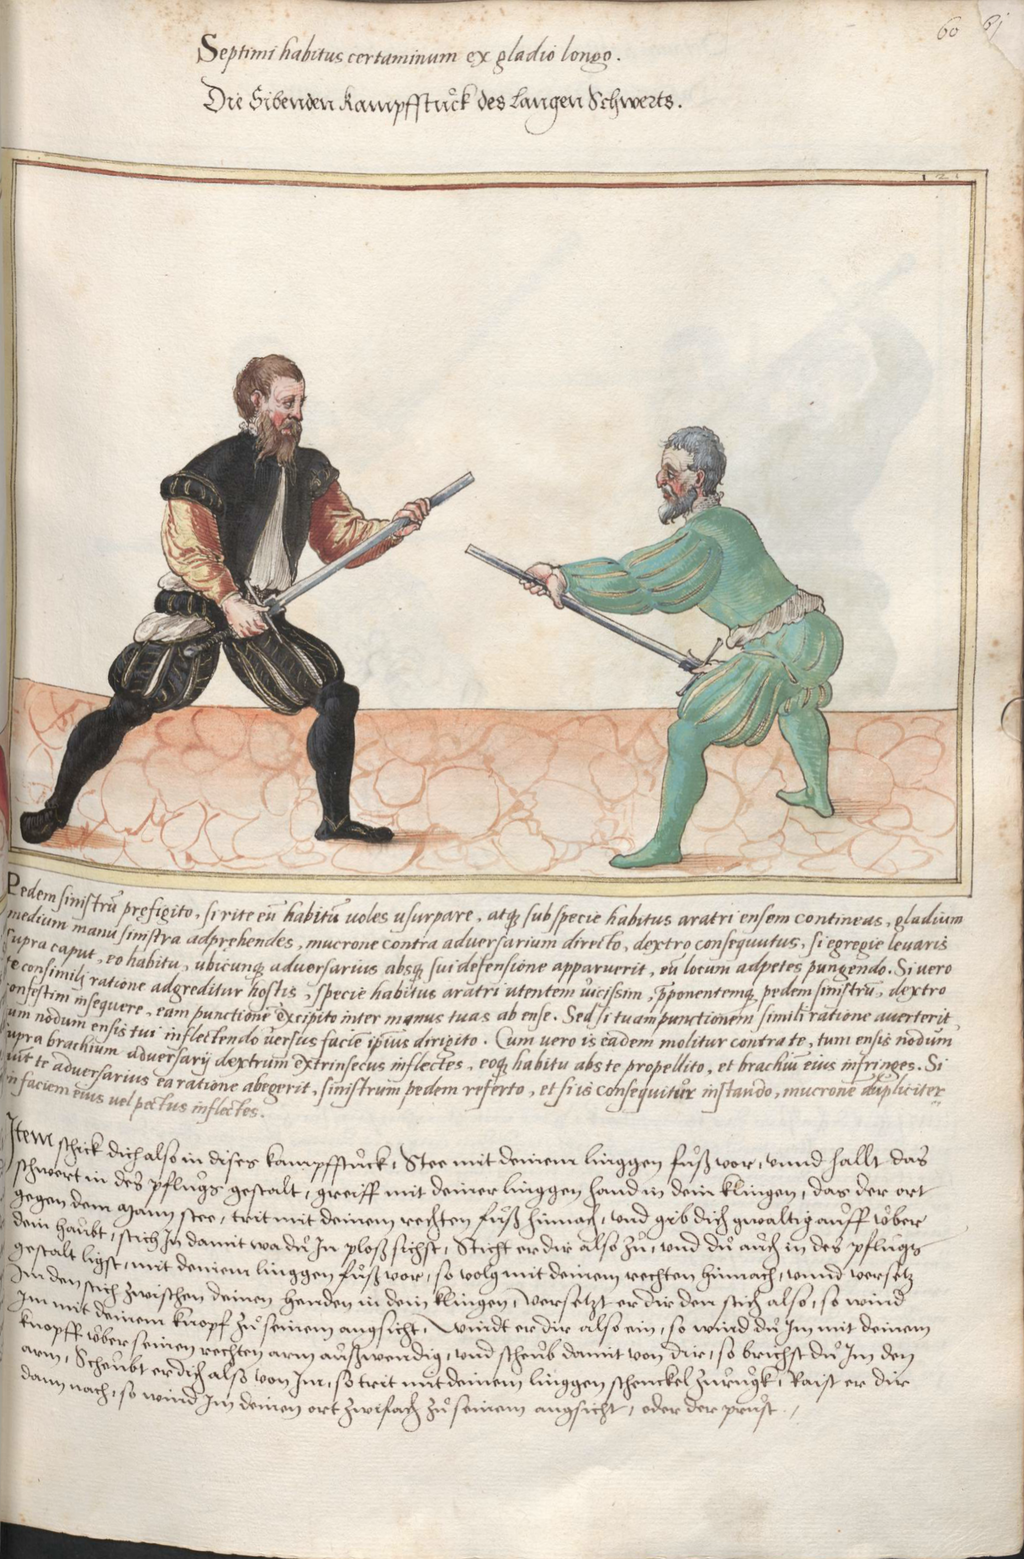 60 61
Septimi habitus certaminum ex gladio longo.
Die Sibenden kampfstuck des Langen Schwerts.
121
Pedem sinistrũ pręfigito, si rite eũ habitũ uoles usurpare, atq; sub specie habitus aratri ensem contineas, gladium
medium manu sinistra adprehendes, mucrone contra aduersarium directo, dextro consequutus, si egregie leuaris
supra caput, eo habitu, ubicunq; aduersarius absq; sui defensione apparuerit, eũ locum adpetes pungendo. Si uero
te consimili ratione adgreditur hostis, specie habitus aratri utentem uicissim, p̃ponentemq; pedem sinistrũ, dextro
confestim insequere, eam punctionẽ excipito inter manus tuas ab ense. Sed si tuam punctionem simili ratione auerterit,
tum nodum ensis tui inflectendo uersus faciẽ ipsius dirigito. Cum uero is eadem molitur contra te, tum ensis nodum
supra brachium aduersarij dextrum extrinsecus inflectes, eoq; habitu abs te propellito, et brachiũ eius infringes. Si
uit te aduersarius ea ratione abegerit, sinistrum pedem referto, et si is consequitur instando, mucronẽ dupliciter
in faciem eius uel pectus inflectes.
Item schick dich also in dises kampfstuck, Stee mit deinem linggen fuß vor, vnnd hallt das
schwert in des pflugs gestalt, greiff mit deiner linggen hand in dein klingen, das der ort
gegen dem Mann stee, trit mit deinem rechten fuß hinnach, vnd gib dich gwaltig auff vber
dein haubt, stich Jn damit wa du Jn ploß sichst, Sticht er dir also zu, vnd du auch in des pflugs
gestalt ligst, mit deinem linggen fuß vor, so volg mit deinem rechten hinnach, vnnd versetz
Jm den stich zwischen deinen henden in dein klingen, Versetzt er dir den stich also, so wind
Jm mit deinem knopf zu seinem angsicht, Windt er dir also ein, so wind du Jm mit deinem
knopff vber seinen rechten arm außwendig, vnd scheub damit von dir, so brichst du Jm den
arm, Scheubt er dich also von Jm, so trit mit deinem linggen schenckel zurugk, Raist er dir
dann nach, so wind Jm deinen ort zwifach zu seinem angsicht, oder der prust.